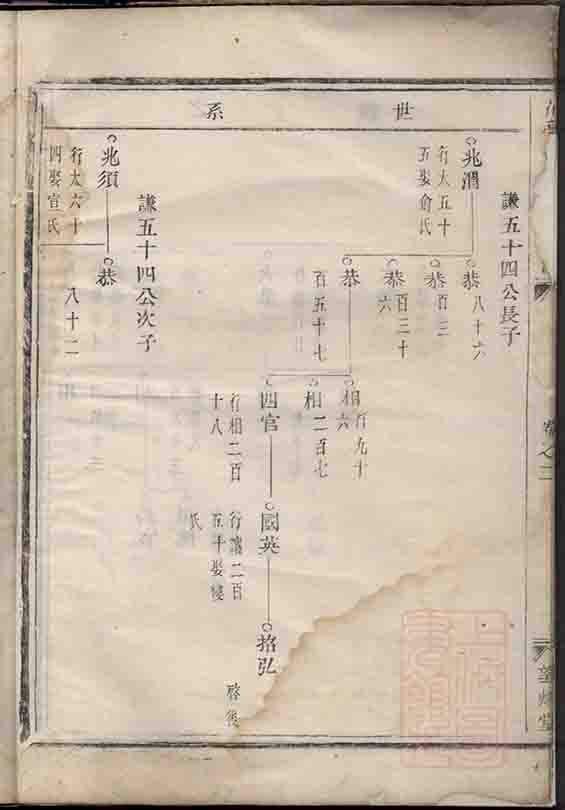 世系
謙五十四公長子
兆渭
行太五十
五娶俞氏
恭
八十六
恭
百三
恭
百三十
六
恭
百五十七
相
行九十
六
相
二百七
四官
行相二百
十八
國英
行讓二百
五十娶婁
氏
拾弘
啓後
謙五十四公次子
兆須
行太六十
四娶官氏
恭
八十二
卷之二